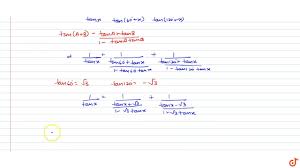 tanx   tan(60+x)   tan(120+x)
tan(A+B) = tanA + tanB / 1 - tanAtanB
1/tanx + 1/(tan60 + tanx / 1 - tan60tanx) + 1/(tan120 + tanx / 1 - tan120 tanx)
tan60 = √3   tan120 = -√3
1/tanx + 1/(tanx + √3 / 1 - √3 tanx) + 1/(tanx - √3 / 1 + √3 tanx)